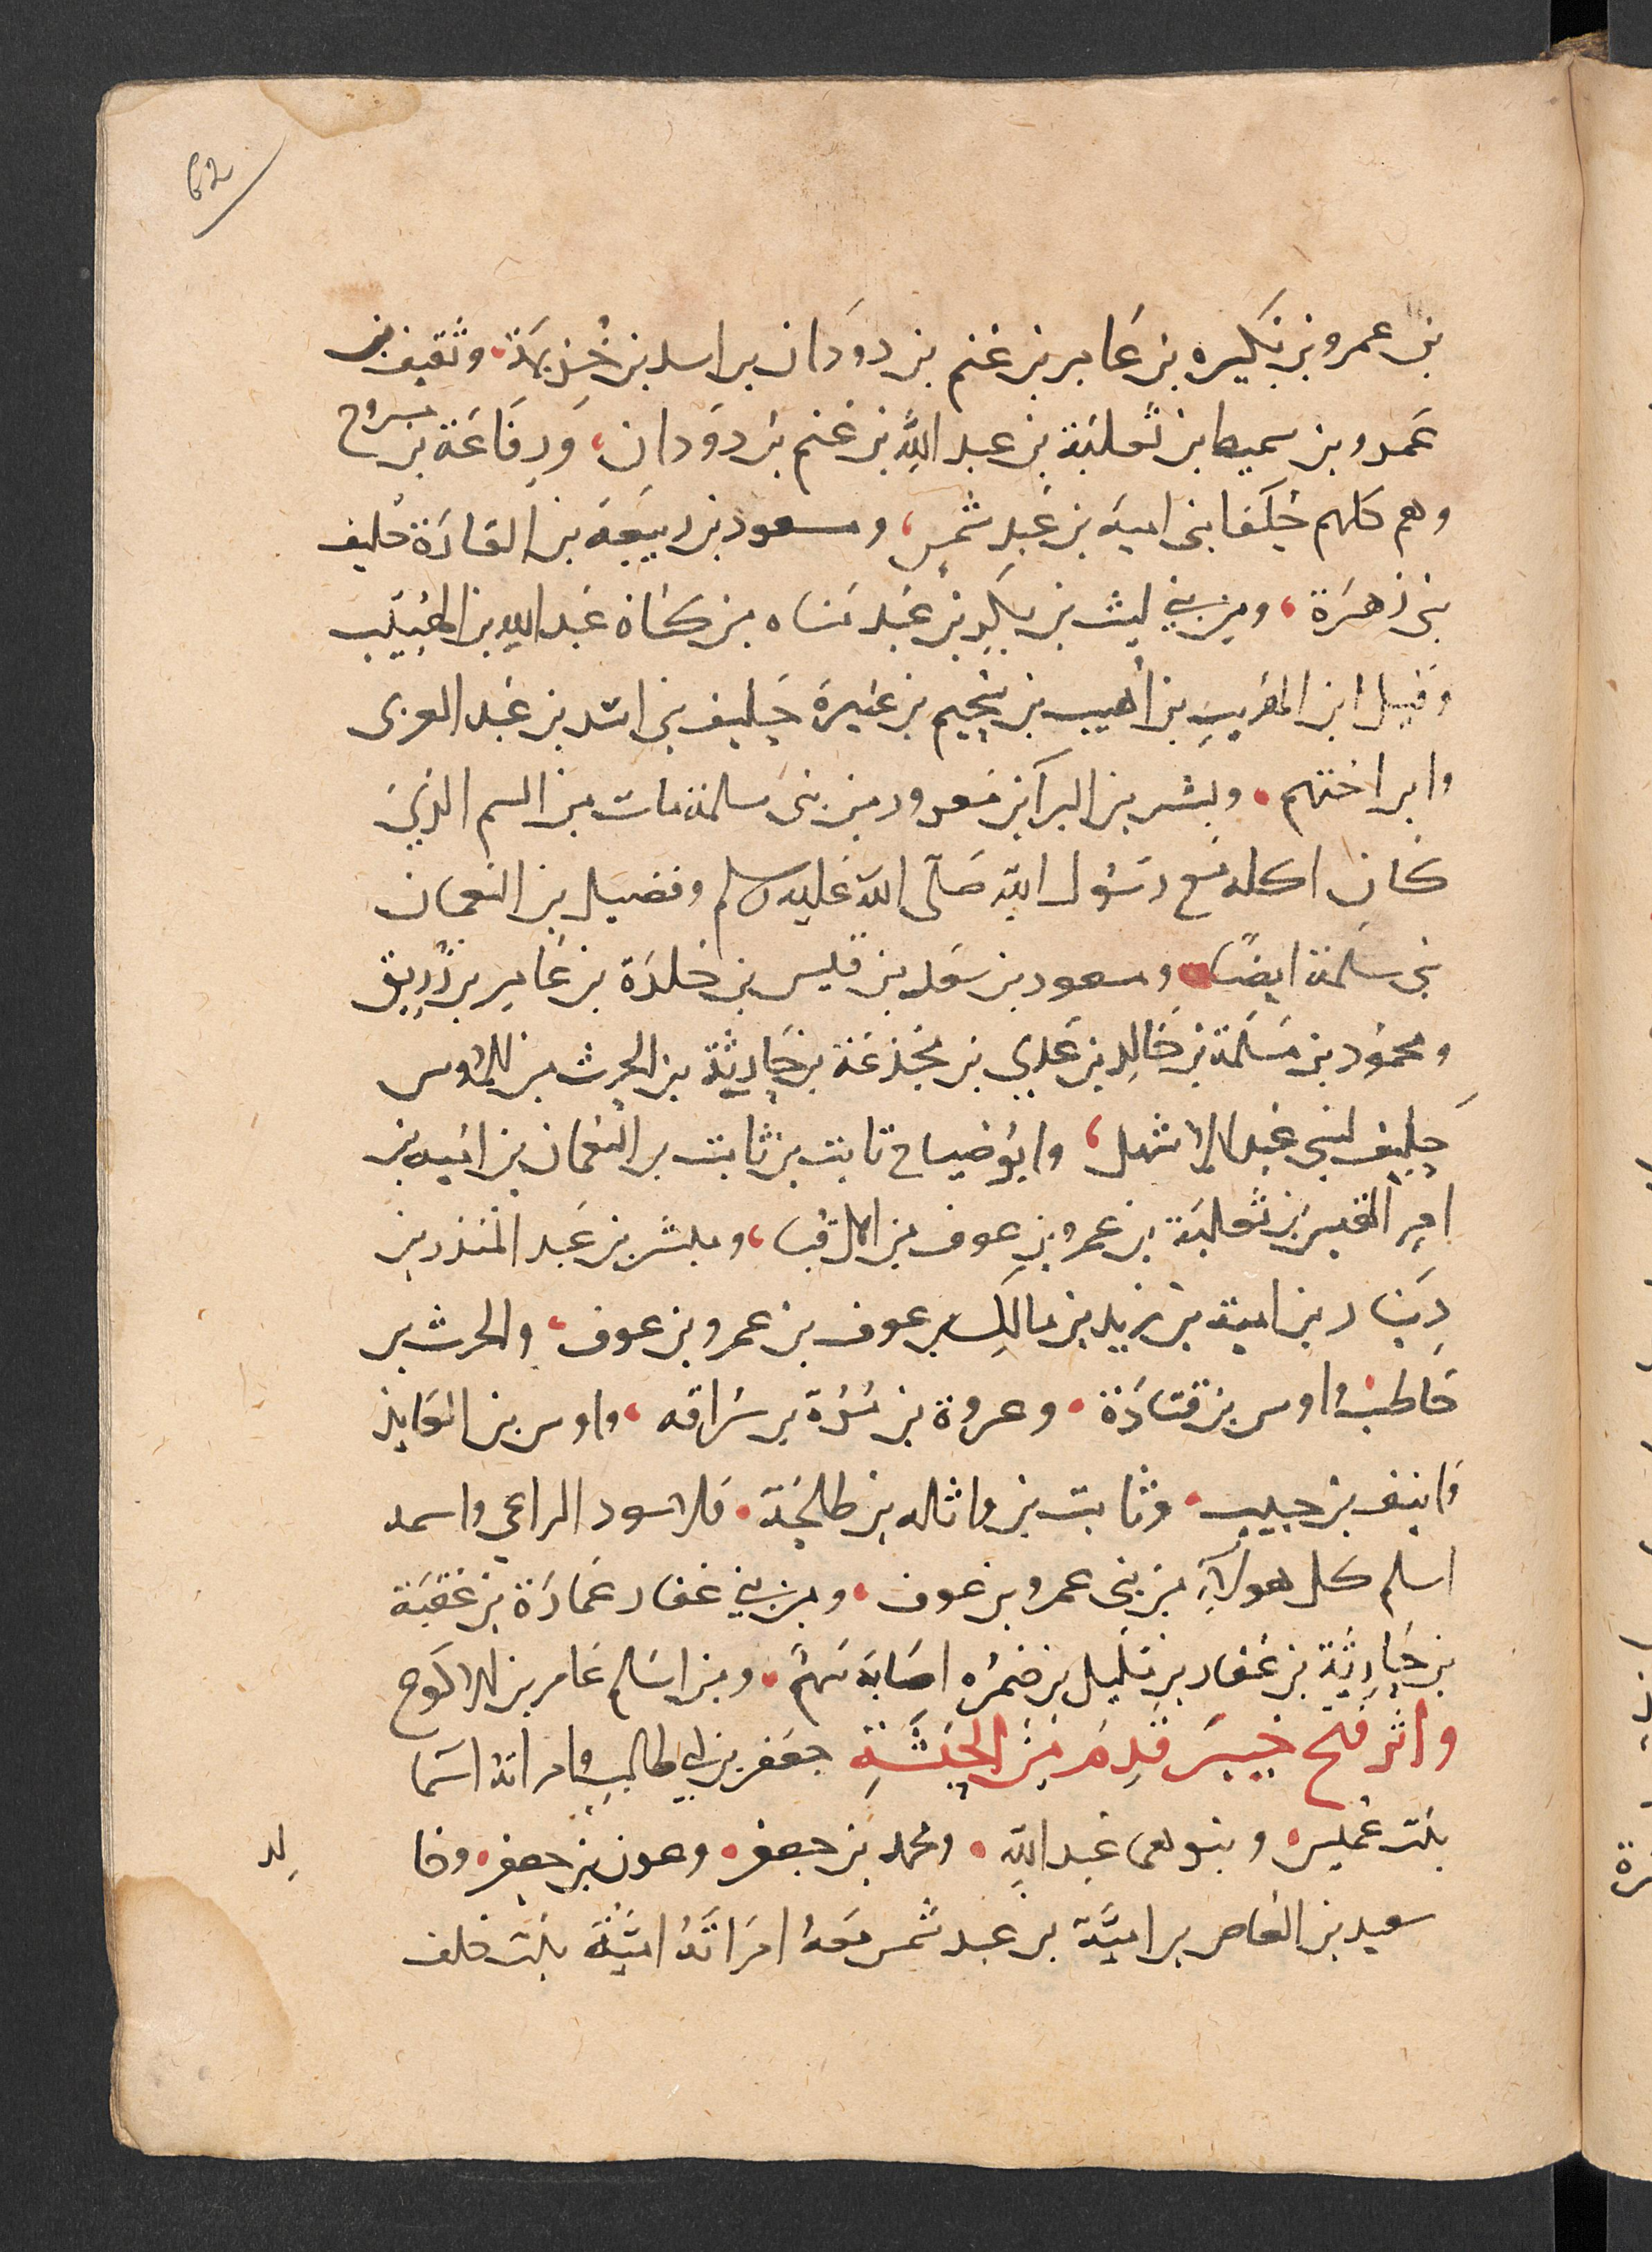 62
بن عمرو بن بكيره بن عامر بن غنم بن دودان بن اسد بن خزيمة، وثقيف بن
عمرو بن سميط بن ثعلبة بن عبد الله بن غنم بن دودان، ورفاعة بن مسروح
وهم كلهم حلفا بنى امية بن عبد شمس، ومسعود بن ربيعة بن القارة حليف
بنى زهرة، ومن بني ليث بن بكر بن عبد مناه بن كنانه عبد الله بن الهبيب
وقيل ابن الهبيب بن اهيب بن سحيم بن غيرة حليف بنى اسد بن عبد العزى
وابن اختهم، وبشر بن البرآ بن معرور من بنى سلمة مات من السم الذي
كان اكله مع رسول الله صلى الله عليه وسلم وفضيل بن النعمان
بنى سلمة ايضا، ومسعود بن سعد بن قيس بن خلدة بن عامر بن زريق
ومحمود بن مسلمة بن خالد بن عدي بن مجذعة بن حارثة بن الحرث من الاوس
حليف لبنى عبد الاشهل، وابو ضياح ثابت بن ثابت بن النعمان بن اميه بن
امرِ القيس بن ثعلبة بن عمرو بن عوف من اهل قبا، ومبشر بن عبد المنذر بن
دينار بن امية بن زيد بن مالك بن عوف بن عمرو بن عوف، والحرث بن
حاطب، واوس بن قتادة، وعروة بن مُرة بن سراقه، واوس بن القايد
وانيف بن حبيب، وثابت بن واثله بن طلحة، والاسود الراعي واسمه
اسلم كل هولآء من بنى عمرو بن عوف، ومن بني غفار عمارة بن عقبة
بن حارثة بن غفار بن مليل بن ضمره اصابه سهم، ومن اسلم عامر بن الاكوع
واثر فتح خيبر قدم من الحبشة جعفر بن ابي طالب وامراته اسما
بنت عميس، وبنوهما عبد الله، ومحمد بن جعفر، وعون بن جعفر، وخا لد
سعيد بن العاص بن امية بن عبد شمس معه امراته امينة بنت خلف